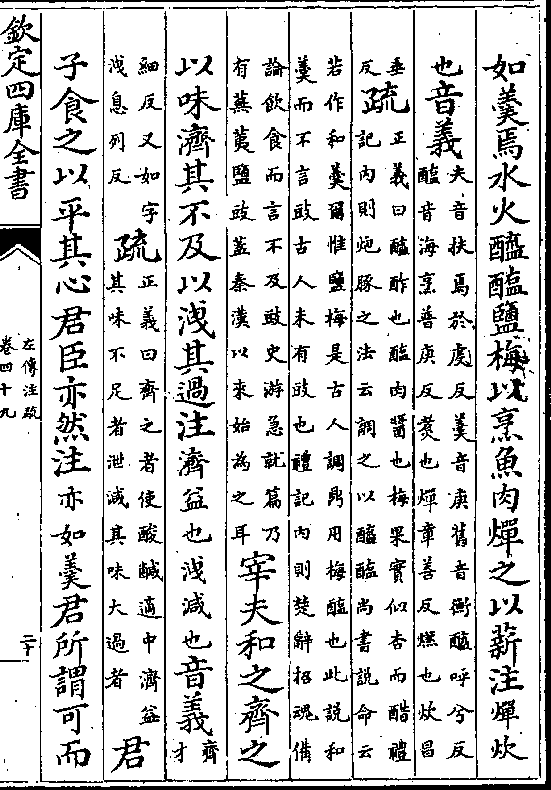 如羮焉水火醯醢鹽梅以烹魚肉燀之以薪注燀炊
也音義
夫音扶焉於虔反羮音庚舊音衡醯呼兮反
醢音海烹普庚反煑也燀章善反燃也炊昌
垂
反
疏
正義曰醯酢也醢肉醬也梅果實似杏而酷禮
記内則炮豚之法云調之以醯醢尚書説命云
若作和羮爾惟鹽梅是古人調鼎用梅醢也此説和
羮而不言豉古人未有豉也禮記内則楚辭招魂備
論飲食而言不及豉史游急就篇乃
有蕪荑鹽豉葢秦漢以來始為之耳
宰夫和之齊之
以味濟其不及以洩其過注濟益也洩減也音義
齊
才
細反又如字
洩息列反
疏
正義曰齊之者使酸鹹適中濟益
其味不足者泄減其味大過者
君
子食之以平其心君臣亦然注亦如羮君所謂可而
欽定四庫全書
左傳注疏
卷四十九
二十